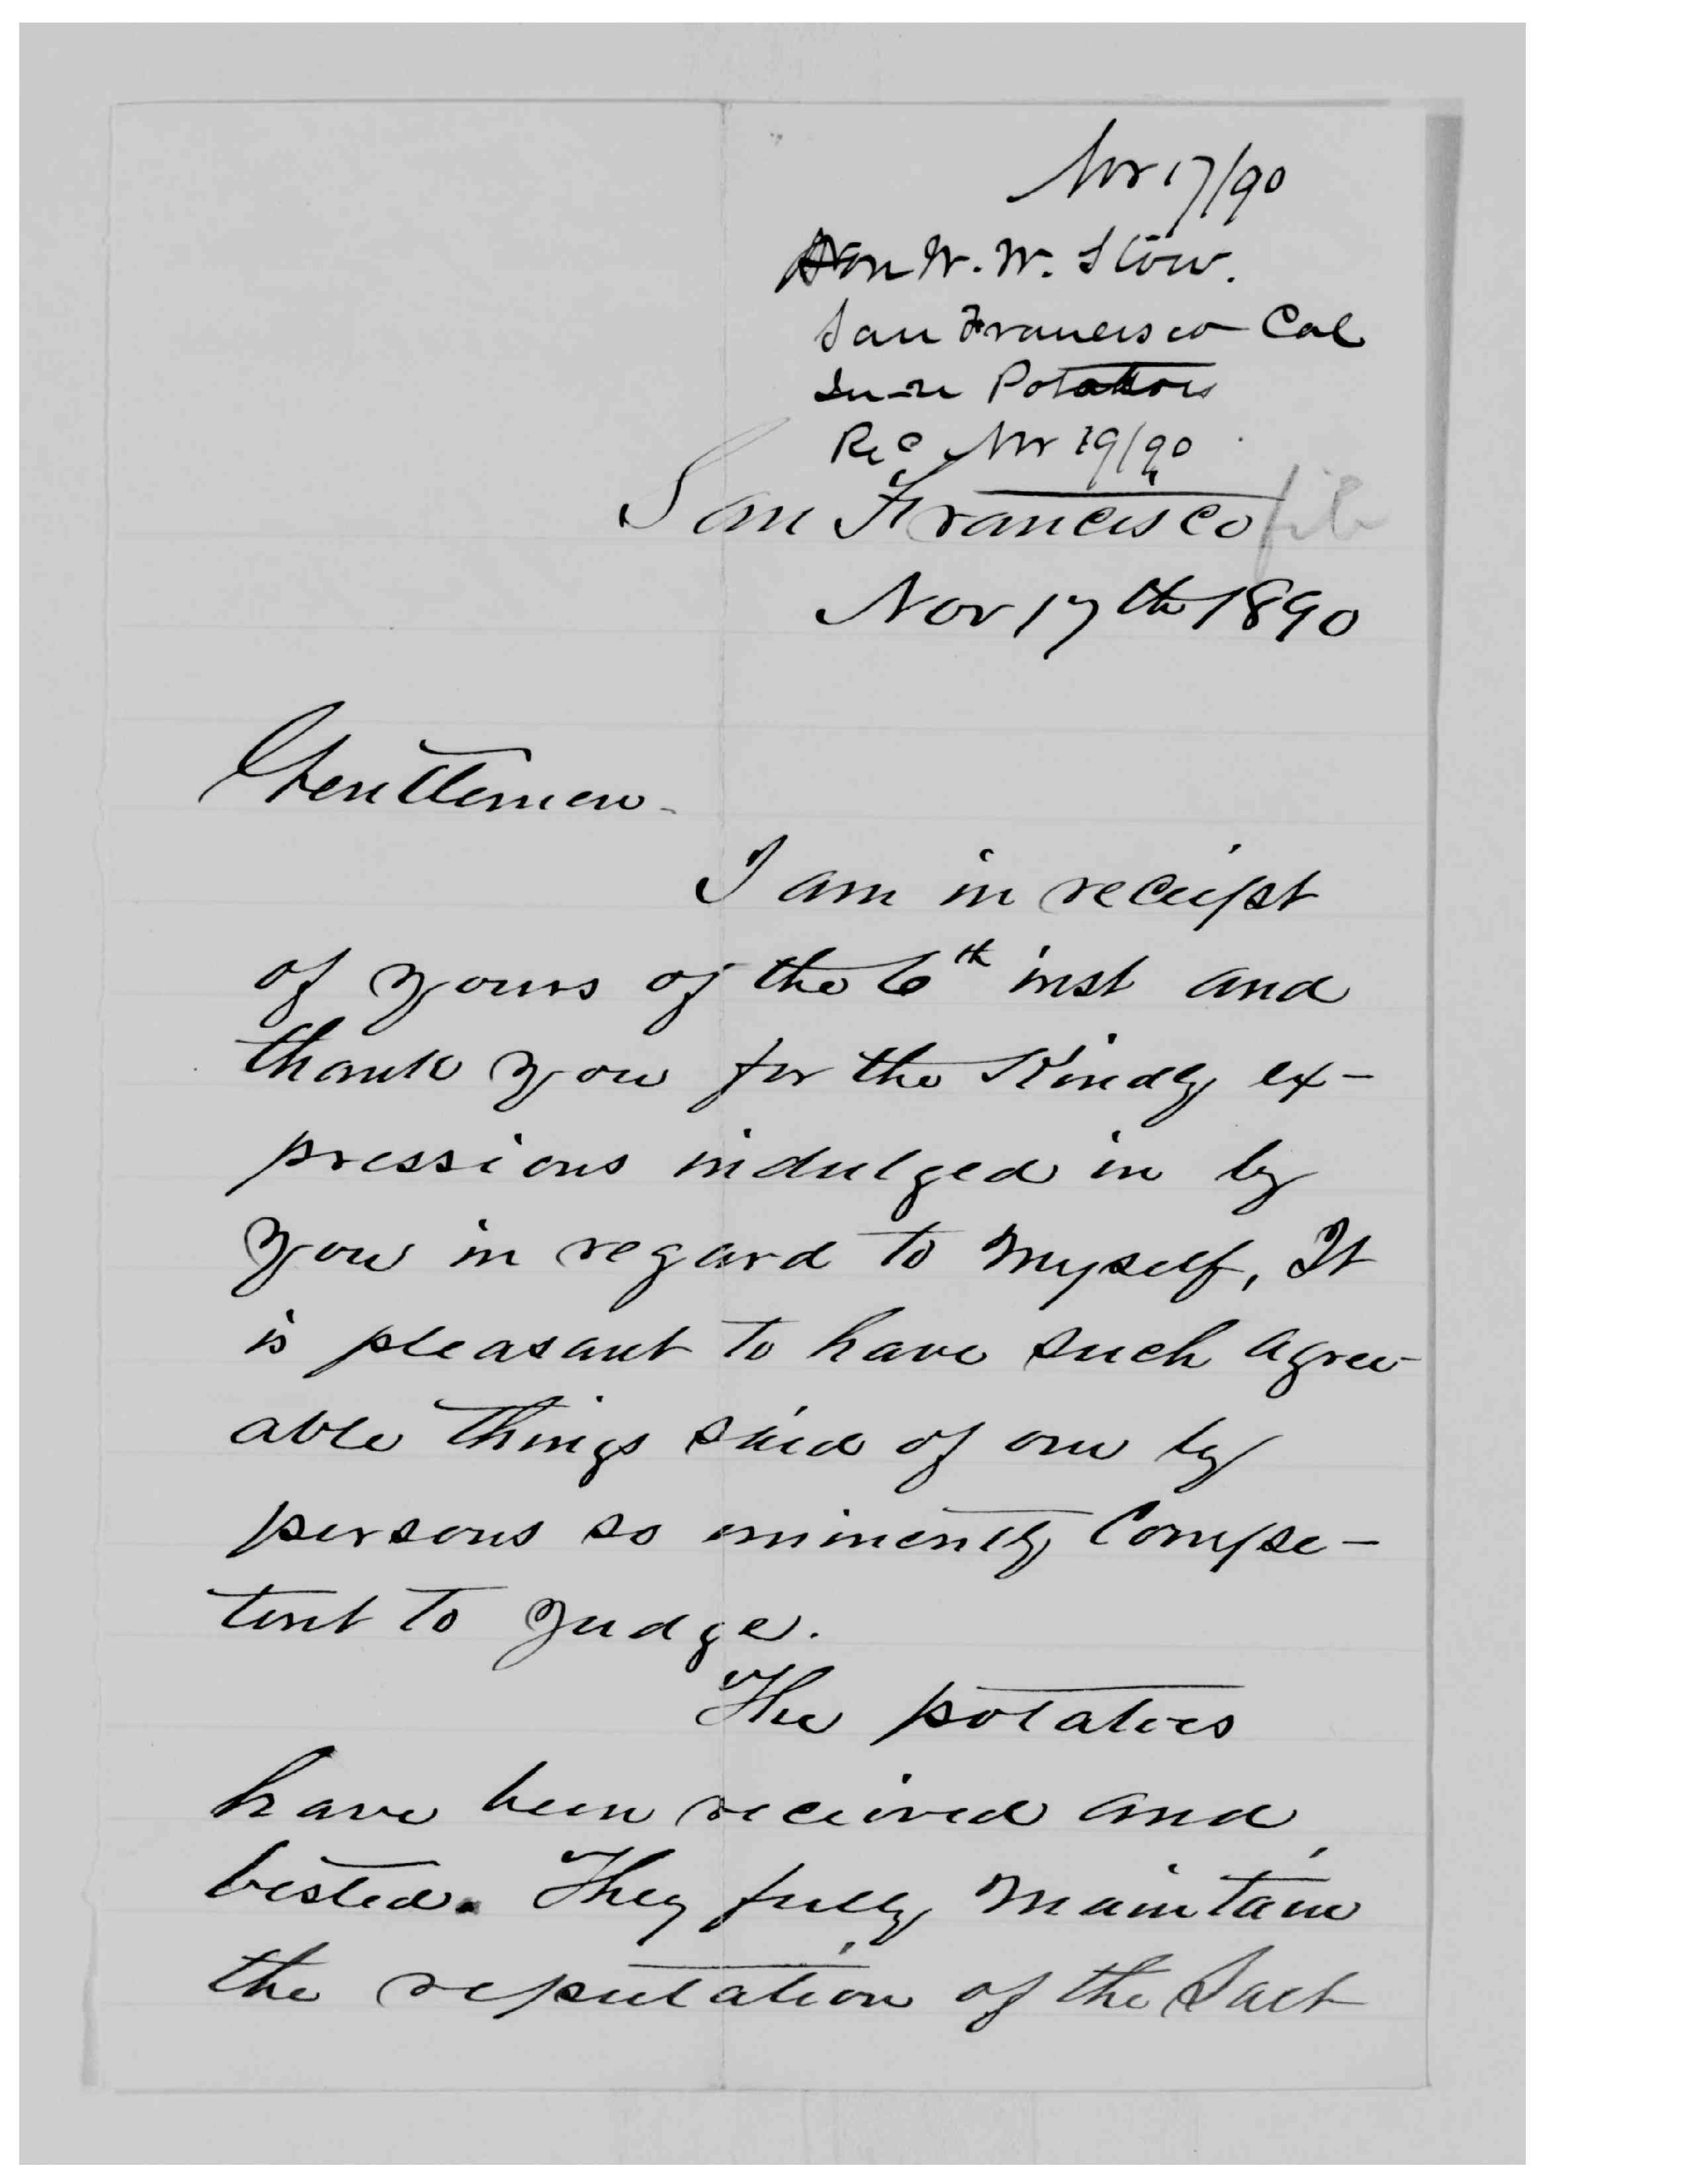 Nov 17/90
Hon W. W. Stow.
San Francisco Cal
In-re Potatoes
Rec Nov 29/90
San Francisco
file
Nov 17th 1890
Gentlemen-
I am in receipt
of yours of the 6th inst and
thank you for the Kindly ex-
pressions indulged in by
you in regard to myself, It
is pleasant to have such agree-
able things said of one by
persons so eminently Compe-
tent to Judge.
The potatoes
have been received and
tested. They fully maintain
the reputation of the Salt